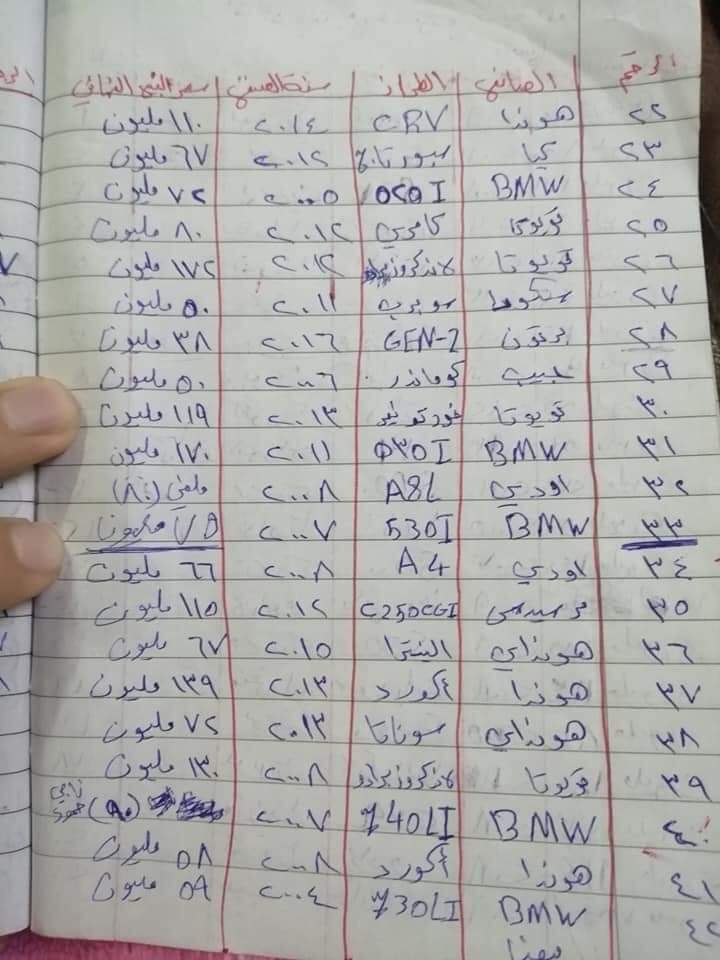 الرقم الصانع الطراز سنة الصنع سعر البيع النهائي
٢٢ هوندا CRV ٢٠١٤ ١١٠ مليون
٢٣ كيا سبورتاج ٢٠١٢ ٦٧ مليون
٢٤ BMW ٥٢٥I ٢٠٠٥ ٧٢ مليون
٢٥ تويوتا كامري ٢٠١٢ ٨٠ مليون
٢٦ تويوتا لاندكروزر ٢٠١٢ ١٧٢ مليون
٢٧ سكودا سوبرب ٢٠١١ ٥٠ مليون
٢٨ برتون GEN-2 ٢٠١٦ ٣٨ مليون
٢٩ جيب كوماندر ٢٠٠٦ ٥٠ مليون
٣٠ تويوتا فورتونر ٢٠١٣ ١١٩ مليون
٣١ BMW ٥٣٥I ٢٠١١ ١٧٠ مليون
٣٢ اودي A8L ٢٠٠٨ ملغي (٨٠)
٣٣ BMW 530I ٢٠٠٧ ٧٥ مليونا
٣٤ اودي A4 ٢٠٠٨ ٦٦ مليون
٣٥ مرسيدس C250CGI ٢٠١٢ ١١٥ مليون
٣٦ هونداي النترا ٢٠١٥ ٦٧ مليون
٣٧ هوندا أكورد ٢٠١٣ ١٣٩ مليون
٣٨ هونداي سوناتا ٢٠١٣ ٧٢ مليون
٣٩ تويوتا لاندكروزر برادو ٢٠٠٨ ١٣٠ مليون
٤٠ BMW 740LI ٢٠٠٧ (٩٠)
٤١ هوندا أكورد ٢٠٠٨ ٥٨ مليون
٤٢ BMW 730LI ٢٠٠٤ ٥٩ مليون